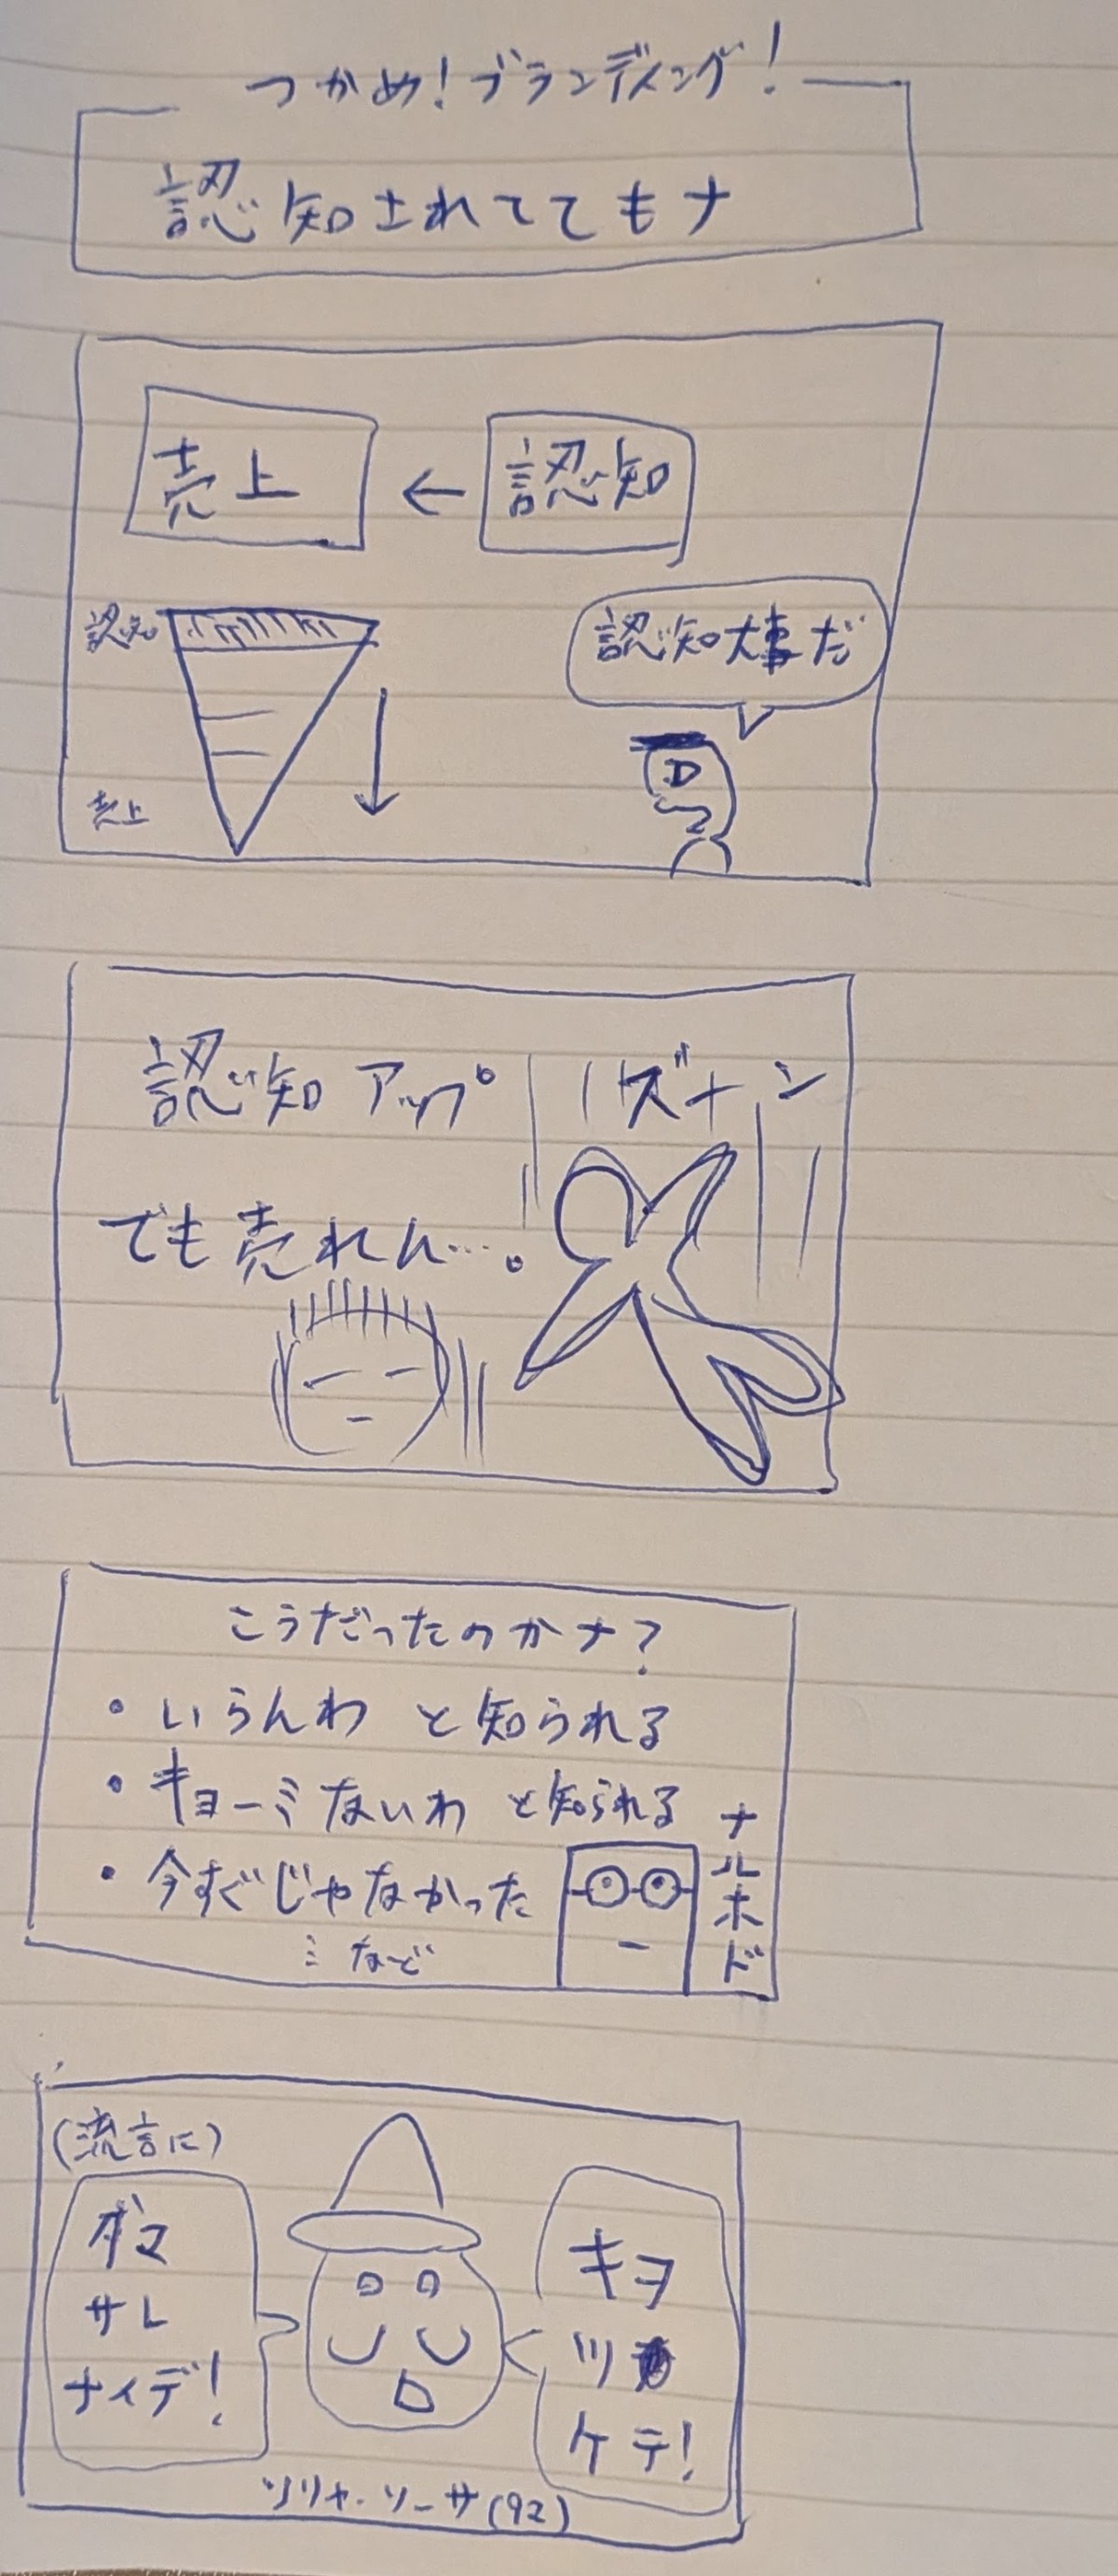 つかめ！ブランディング！
認知されててもナ
売上 ← 認知
認知
売上
認知大事だ
認知アップ
でも売れん…。
ズナーン
こうだったのかナ？
・いらんわ と知られる
・キョーミないわ と知られる
・今すぐじゃなかった
：など
ナルホド
（流言に）
ダマ
サレ
ナイデ！
キヲ
ツ
ケテ！
ソリャ・ソーサ（92）